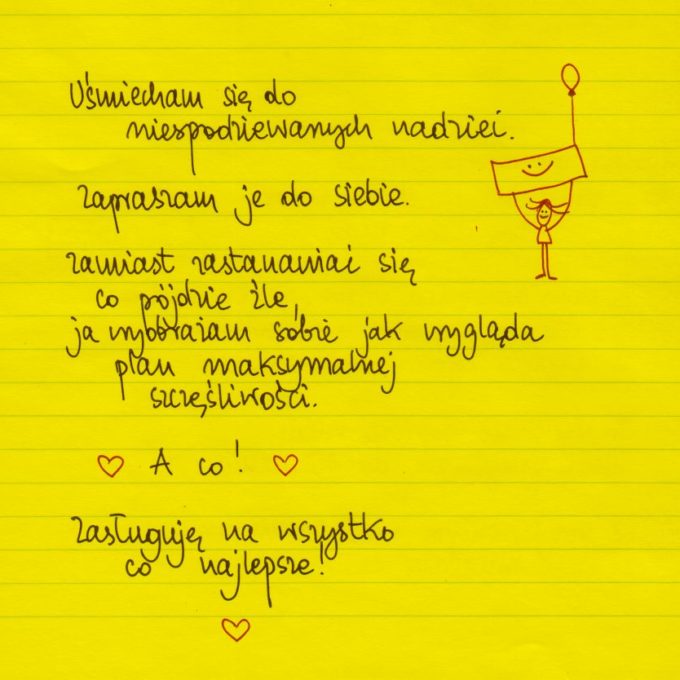 Uśmiecham się do
niespodziewanych nadziei.
Zapraszam je do siebie.
Zamiast zastanawiać się
co pójdzie źle,
ja wyobrażam sobie jak wygląda
plan maksymalnej
szczęśliwości.
A co!
Zasługuję na wszystko
co najlepsze!